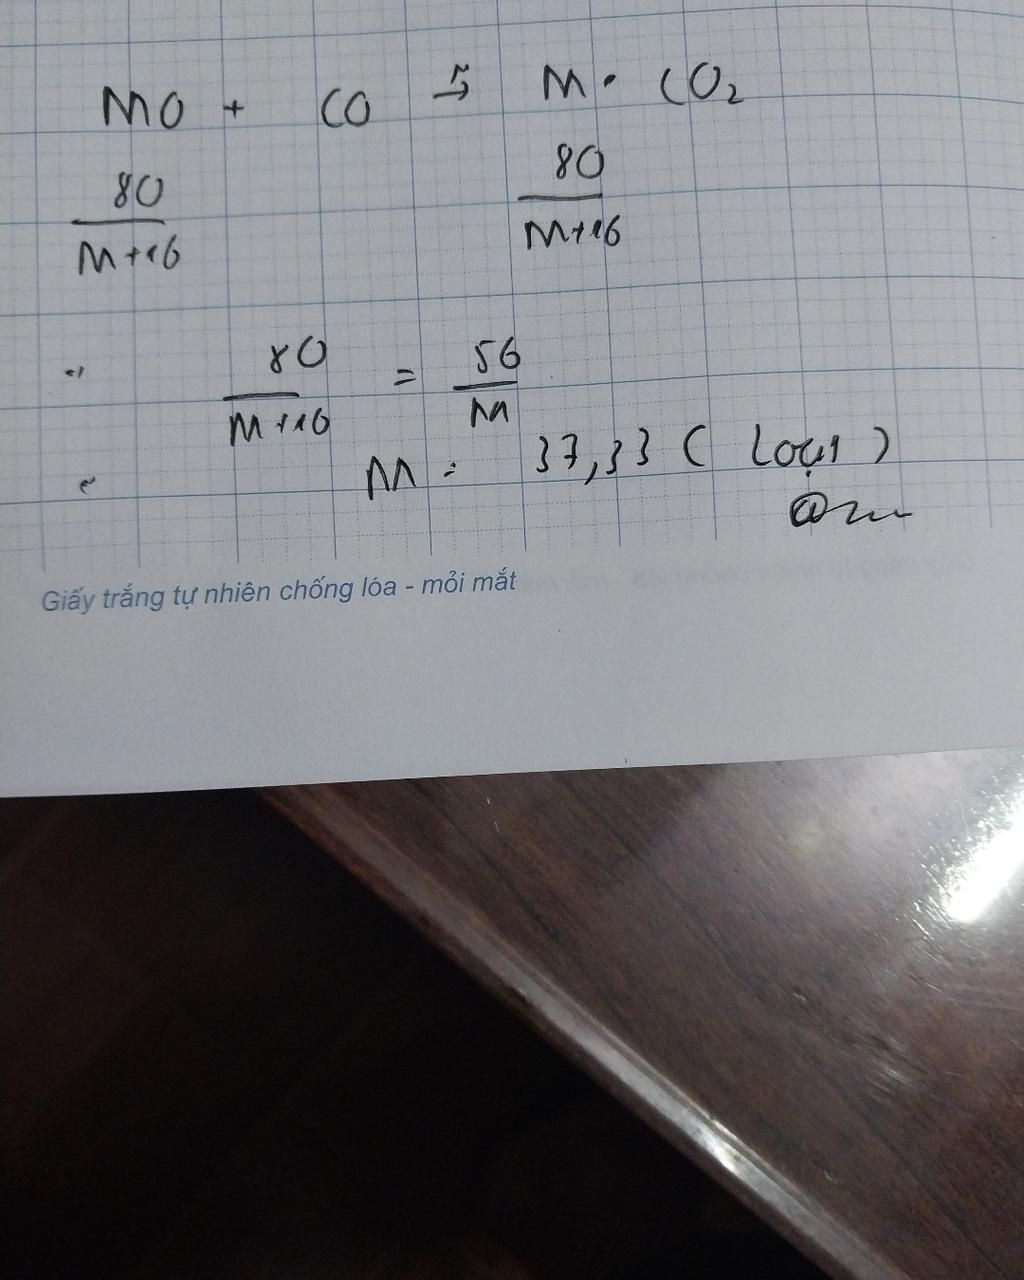 MO + CO → M + CO₂
80 80
M+16 M+16
80 = 56
M+16 M
M = 37,33 ( loại )
Giấy trắng tự nhiên chống lóa - mỏi mắt